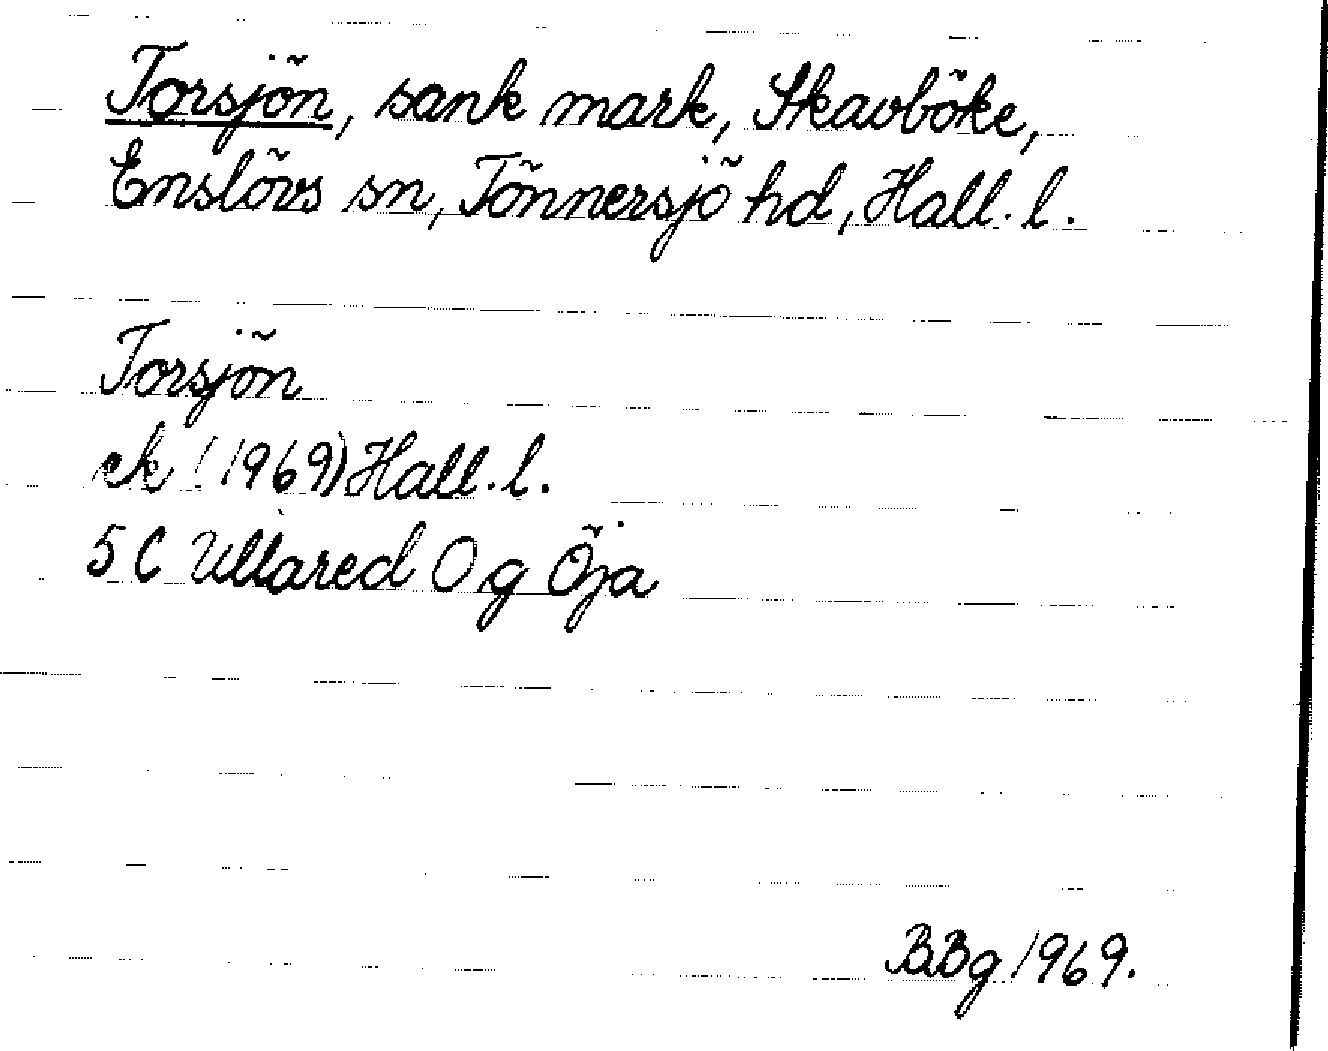 Torsjön, sank mark, Skavböke,
Enslövs sn, Tönnersjö hd, Hall. l.
Torsjön
ek (1969) Hall. l.
5 C Ullared 0 g Öja
BBg 1969.